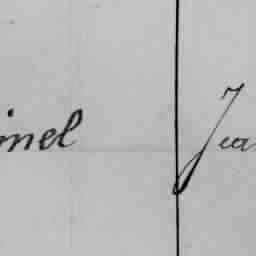 inel Jea